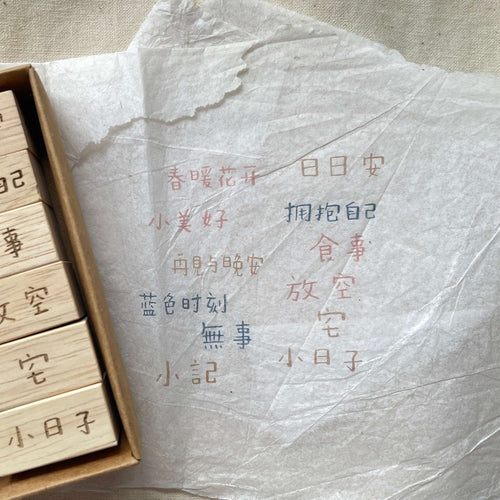 春暖花开
小美好
再見与晚安
蓝色时刻
無事
小記
日日安
拥抱自己
食事
放空
宅
小日子
己
事
放空
宅
小日子